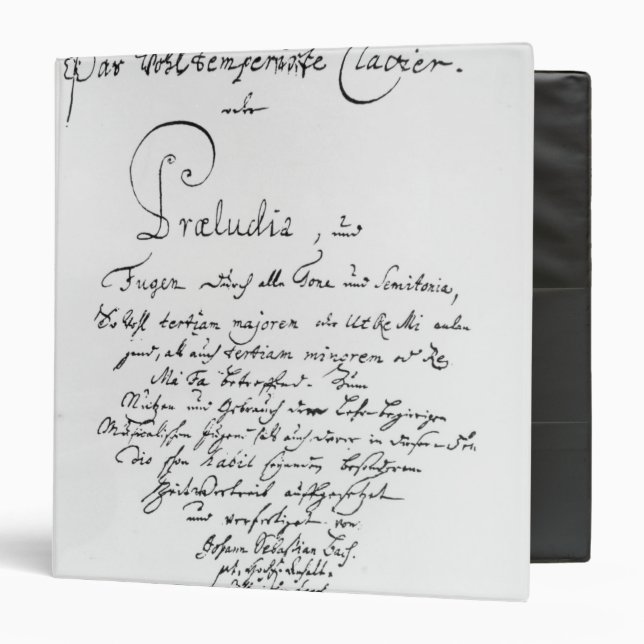 Das Wohltemperirte Clavier.
oder
Præludia, und
Fugen durch alle Tone und Semitonia,
So wohl tertiam majorem oder Ut Re Mi anlan
gend, als auch tertiam minorem od Re
Mi Fa betreffend. Zum
Nutzen und Gebrauch der Lehr-begierigen
Musicalischen Jugend, als auch derer in diesem stu
dio schon habil seyenden besonderem
Zeitvertreib auffgesetzet
und verfertiget von
Johann Sebastian Bach.
p.t. Hochf. Anhalt-